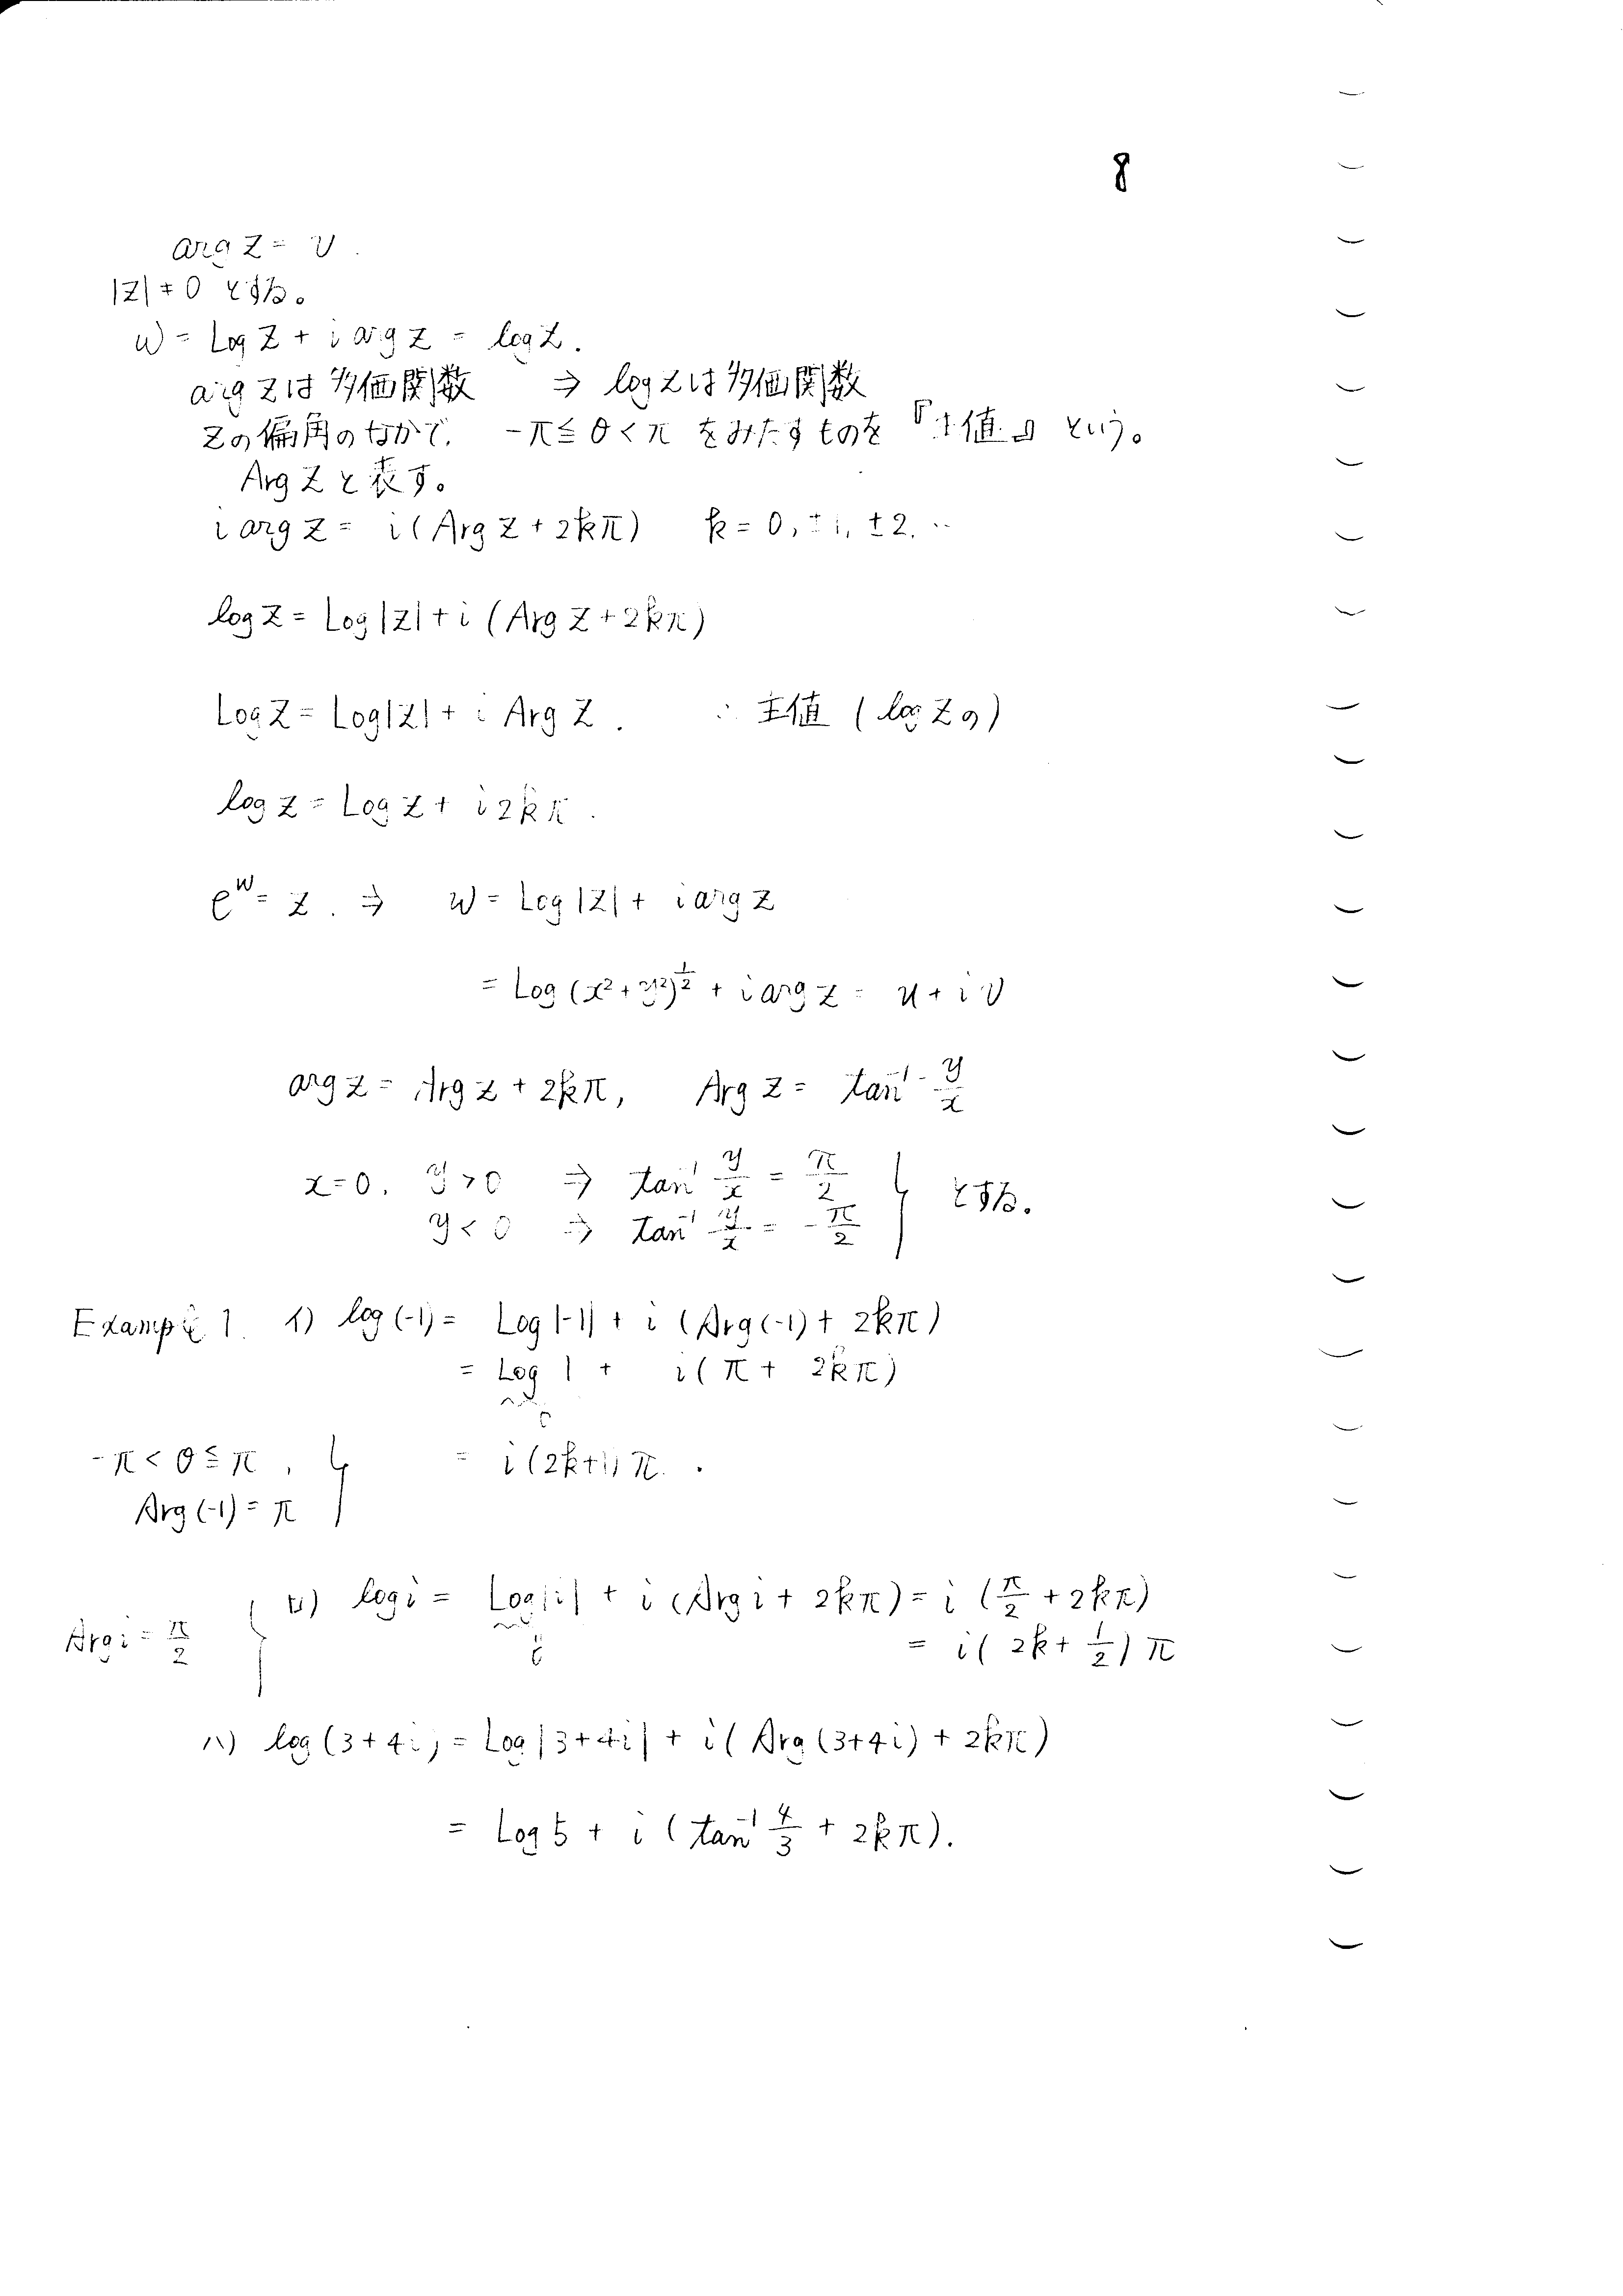 8
arg z = v.
|z| ≠ 0 とする。
w = Log z + i arg z = log z.
arg z は多価関数 ⇒ log z は多価関数
zの偏角のなかで、 -π ≦ θ < π をみたすものを『主値』という。
Arg z と表す。
i arg z = i ( Arg z + 2kπ) k = 0, ±1, ±2, ‥
log z = Log |z| + i ( Arg z + 2kπ)
Log z = Log|z| + i Arg z . ∴ 主値 ( log z の )
log z = Log z + i 2kπ .
e^w = z . ⇒ w = Log |z| + i arg z
= Log (x² + y²)^{1/2} + i arg z = u + i v
arg z = Arg z + 2kπ, Arg z = tan⁻¹ y/x
x = 0, y > 0 ⇒ tan⁻¹ y/x = π/2
y < 0 ⇒ tan⁻¹ y/x = -π/2 } とする。
Example 1. イ) log (-1) = Log |-1| + i ( Arg (-1) + 2kπ)
= Log 1 + i ( π + 2kπ)
0
-π < θ ≦ π , = i (2k+1) π .
Arg (-1) = π
ロ) log i = Log |i| + i ( Arg i + 2kπ) = i ( π/2 + 2kπ)
Arg i = π/2 0 = i ( 2k + 1/2 ) π
ハ) log (3 + 4i) = Log |3 + 4i| + i ( Arg (3+4i) + 2kπ)
= Log 5 + i ( tan⁻¹ 4/3 + 2kπ).